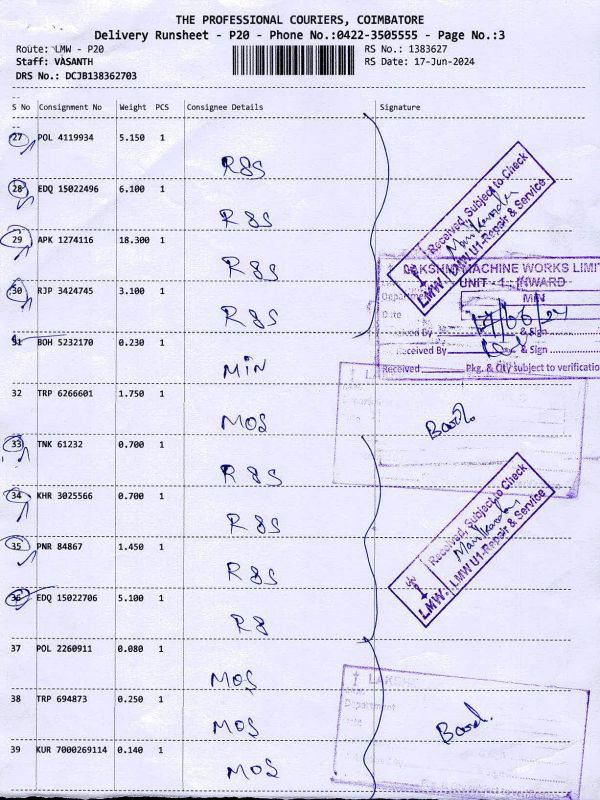 THE PROFESSIONAL COURIERS, COIMBATORE
Delivery Runsheet - P20 - Phone No.:0422-3505555 - Page No.:3
Route: LMW - P20
RS No.: 1383627
Staff: VASANTH
RS Date: 17-Jun-2024
DRS No.: DCJB138362703
S No Consignment No Weight PCS Consignee Details Signature
27 POL 4119934 5.150 1
R&S
28 EDQ 15022496 6.100 1
R&S
29 APK 1274116 18.300 1
R&S
30 RJP 3424745 3.100 1
R&S
31 BOH 5232170 0.230 1
MIN
32 TRP 6266601 1.750 1
MOS
33 TNK 61232 0.700 1
R&S
34 KHR 3025566 0.700 1
R&S
35 PNR 84867 1.450 1
R&S
36 EDQ 15022706 5.100 1
R&
37 POL 2260911 0.080 1
MOS
38 TRP 694873 0.250 1
MOS
39 KUR 7000269114 0.140 1
MOS
Received, Subject to Check
LMW. LMW U1-Repair & Service
LAKSHMI MACHINE WORKS LIMIT
UNIT - 1 : INWARD
MIN
Date
17/06/24
Received By & Sign
Received By & Sign
Received Pkg. & Qty subject to verificatio
Received, Subject to Check
LMW. LMW U1-Repair & Service
Department